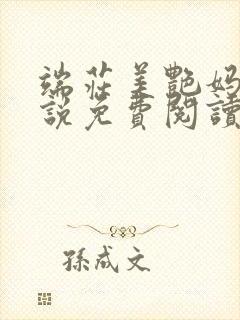 端莊美艷妈
說免費閱讀
孫成文